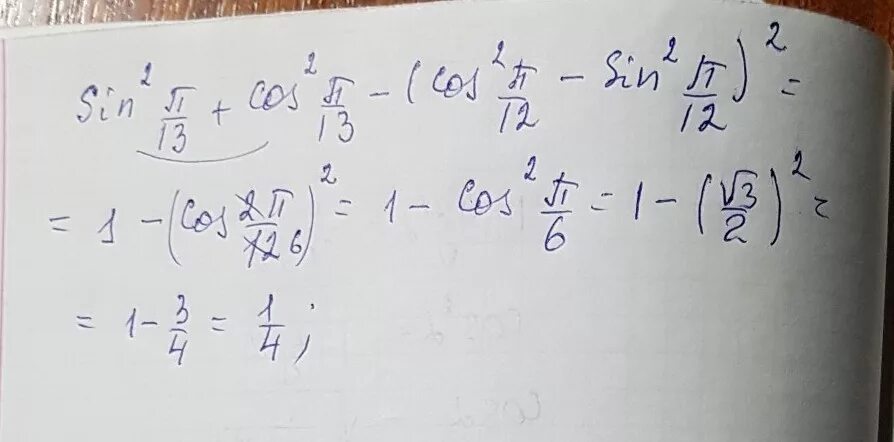 Sin² π/13 + cos² π/13 − (cos² π/12 − Sin² π/12)² =
= 1 − (cos 2π/12 6)² = 1 − cos² π/6 = 1 − (√3/2)² =
= 1 − 3/4 = 1/4 ;